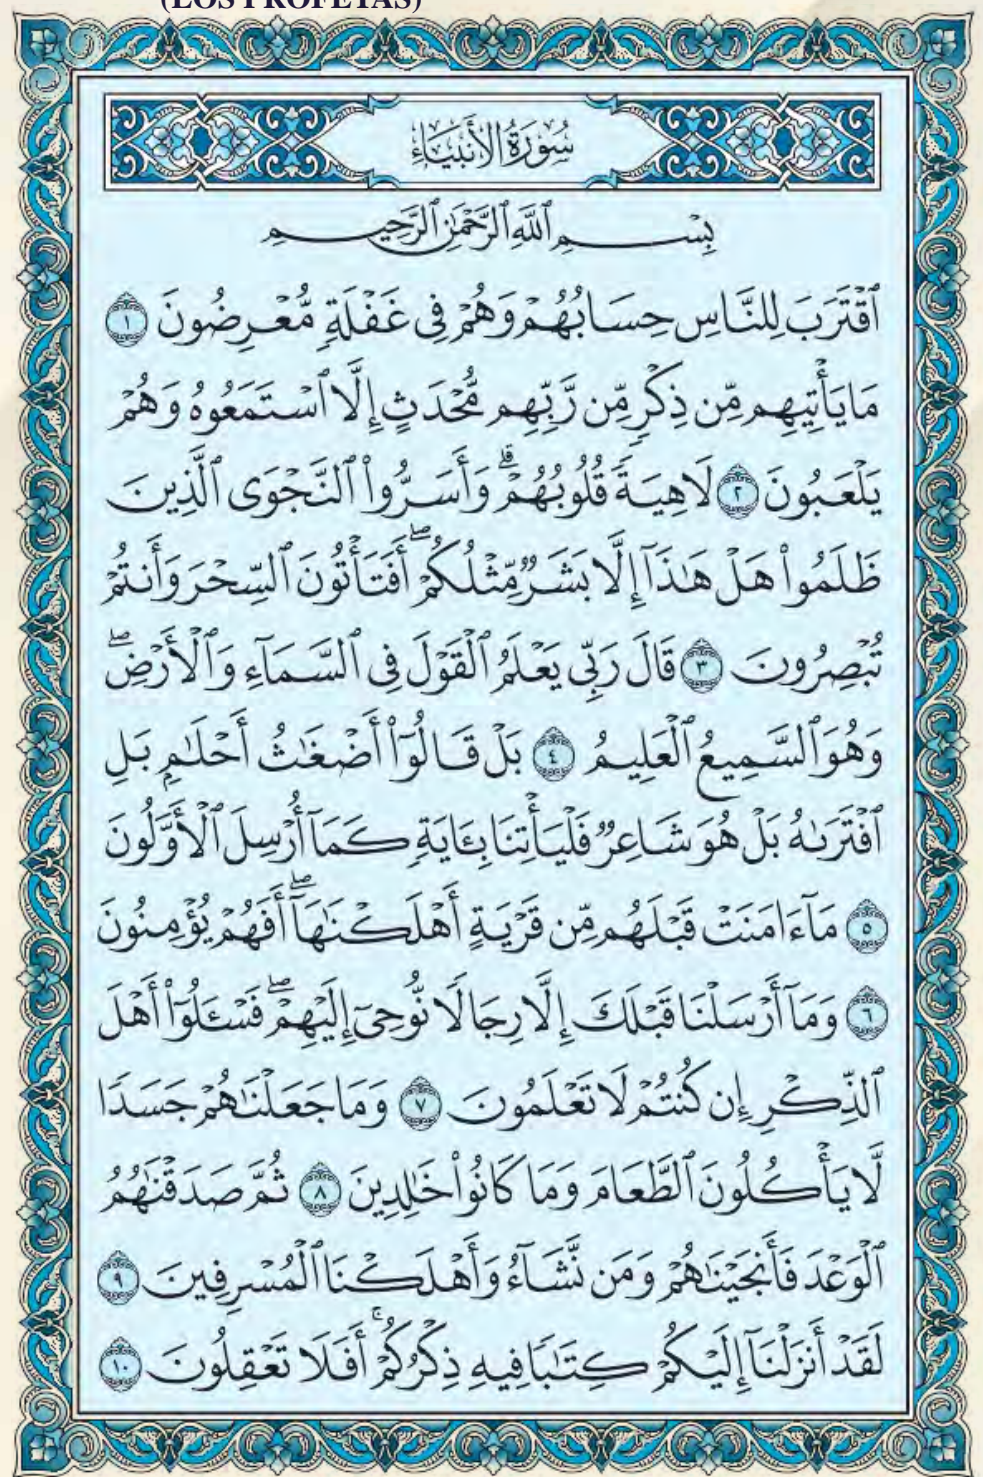 (LOS PROFETAS)
سُورَةُ الأَنبيَاء
بِسْمِ ٱللَّهِ ٱلرَّحْمَٰنِ ٱلرَّحِيمِ
ٱقْتَرَبَ لِلنَّاسِ حِسَابُهُمْ وَهُمْ فِى غَفْلَةٍ مُّعْرِضُونَ ١
مَا يَأْتِيهِم مِّن ذِكْرٍ مِّن رَّبِّهِم مُّحْدَثٍ إِلَّا ٱسْتَمَعُوهُ وَهُمْ
يَلْعَبُونَ ٢ لَاهِيَةً قُلُوبُهُمْ ۗ وَأَسَرُّوا۟ ٱلنَّجْوَى ٱلَّذِينَ
ظَلَمُوا۟ هَلْ هَٰذَآ إِلَّا بَشَرٌ مِّثْلُكُمْ ۖ أَفَتَأْتُونَ ٱلسِّحْرَ وَأَنتُمْ
تُبْصِرُونَ ٣ قَالَ رَبِّى يَعْلَمُ ٱلْقَوْلَ فِى ٱلسَّمَآءِ وَٱلْأَرْضِ ۖ
وَهُوَ ٱلسَّمِيعُ ٱلْعَلِيمُ ٤ بَلْ قَالُوٓا۟ أَضْغَٰثُ أَحْلَٰمٍ بَلِ
ٱفْتَرَىٰهُ بَلْ هُوَ شَاعِرٌ فَلْيَأْتِنَا بِـَٔايَةٍ كَمَآ أُرْسِلَ ٱلْأَوَّلُونَ
٥ مَآ ءَامَنَتْ قَبْلَهُم مِّن قَرْيَةٍ أَهْلَكْنَٰهَآ ۖ أَفَهُمْ يُؤْمِنُونَ
٦ وَمَآ أَرْسَلْنَا قَبْلَكَ إِلَّا رِجَالًا نُّوحِىٓ إِلَيْهِمْ ۖ فَسْـَٔلُوٓا۟ أَهْلَ
ٱلذِّكْرِ إِن كُنتُمْ لَا تَعْلَمُونَ ٧ وَمَا جَعَلْنَٰهُمْ جَسَدًا
لَّا يَأْكُلُونَ ٱلطَّعَامَ وَمَا كَانُوا۟ خَٰلِدِينَ ٨ ثُمَّ صَدَقْنَٰهُمُ
ٱلْوَعْدَ فَأَنجَيْنَٰهُمْ وَمَن نَّشَآءُ وَأَهْلَكْنَا ٱلْمُسْرِفِينَ ٩
لَقَدْ أَنزَلْنَآ إِلَيْكُمْ كِتَٰبًا فِيهِ ذِكْرُكُمْ ۚ أَفَلَا تَعْقِلُونَ ١٠